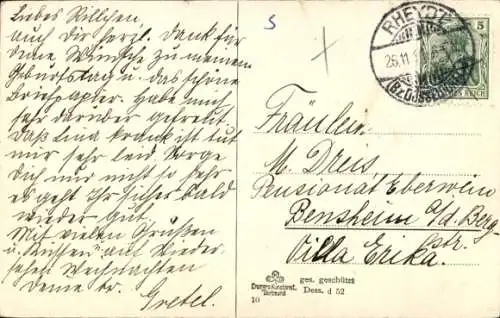 Liebes Killchen,
auch Dir herzl. Dank für
Deine Wünsche zu meinem
Geburtstag u. das schöne
Briefpapier. Habe mich
sehr darüber gefreut.
Daß Lina krank ist tut
mir sehr leid. Sorge
Dich nur nicht so sehr
es geht Ihr sicher bald
wieder gut.
Mit vielen Grüßen
u. Küssen auf Wieder-
sehen Weihnachten
Deine tr.
Gretel.
S
RHEYDT
26.11.
(Bz. DÜSSELDORF)
5
REICH
Fräulein
M. Dreis,
Pensionat Eberwein
Bensheim a/d. Berg-
str.
Villa Erika.
ges. geschützt
Dess. d 52
10